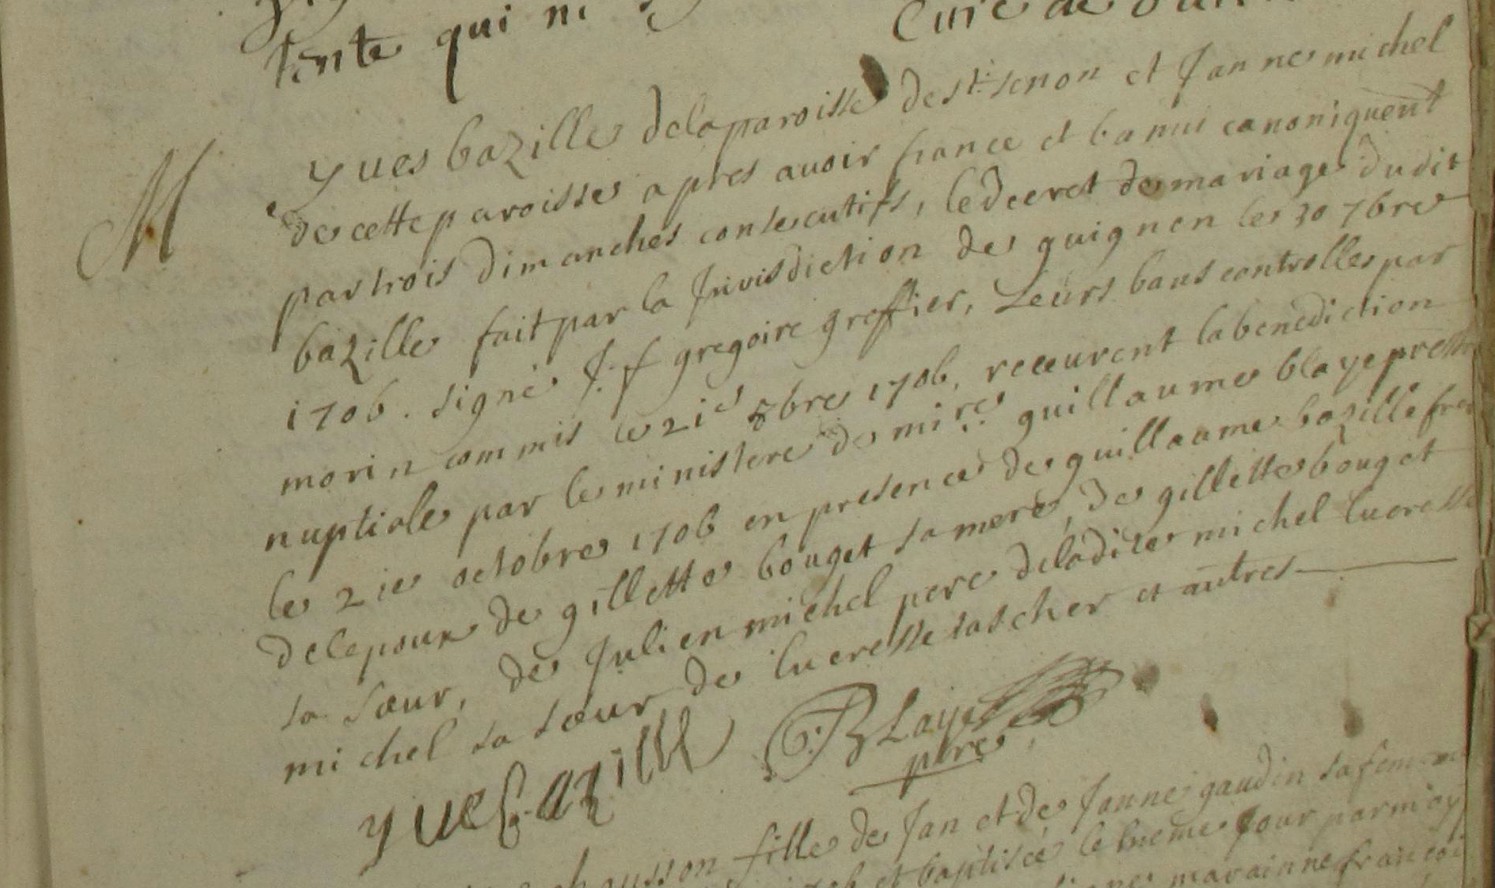 tente qui
Curé de
M
yves bazille de la paroisse de st: senon et Janne michel
de cette paroisse apres avoir fiancé et bannis canoniquent
par trois dimanches consecutifs, le decret de mariage dudit
bazille fait par la Jurisdiction de guignen le 30 7bre
1706. signé J: f gregoire greffier, Leurs bans controllés par
morin commis le 21e 8bre 1706, receurent la benediction
nuptiale par le ministere de mire guillaume blaye prestre
le 21e octobre 1706 en presence de guillaume bazille frere
de lepoux de gillette bouget sa mere, de gillette bouget
sa sœur, de Julien michel pere de ladite michel lucresse
michel sa sœur de lucresse tascher et autres
yve bazille G: BLaye
ptre
fille de Jan et de Janne gaudin sa femme
et baptisée le meme jour par moy
marainne francoi